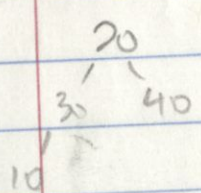 20
30 40
10